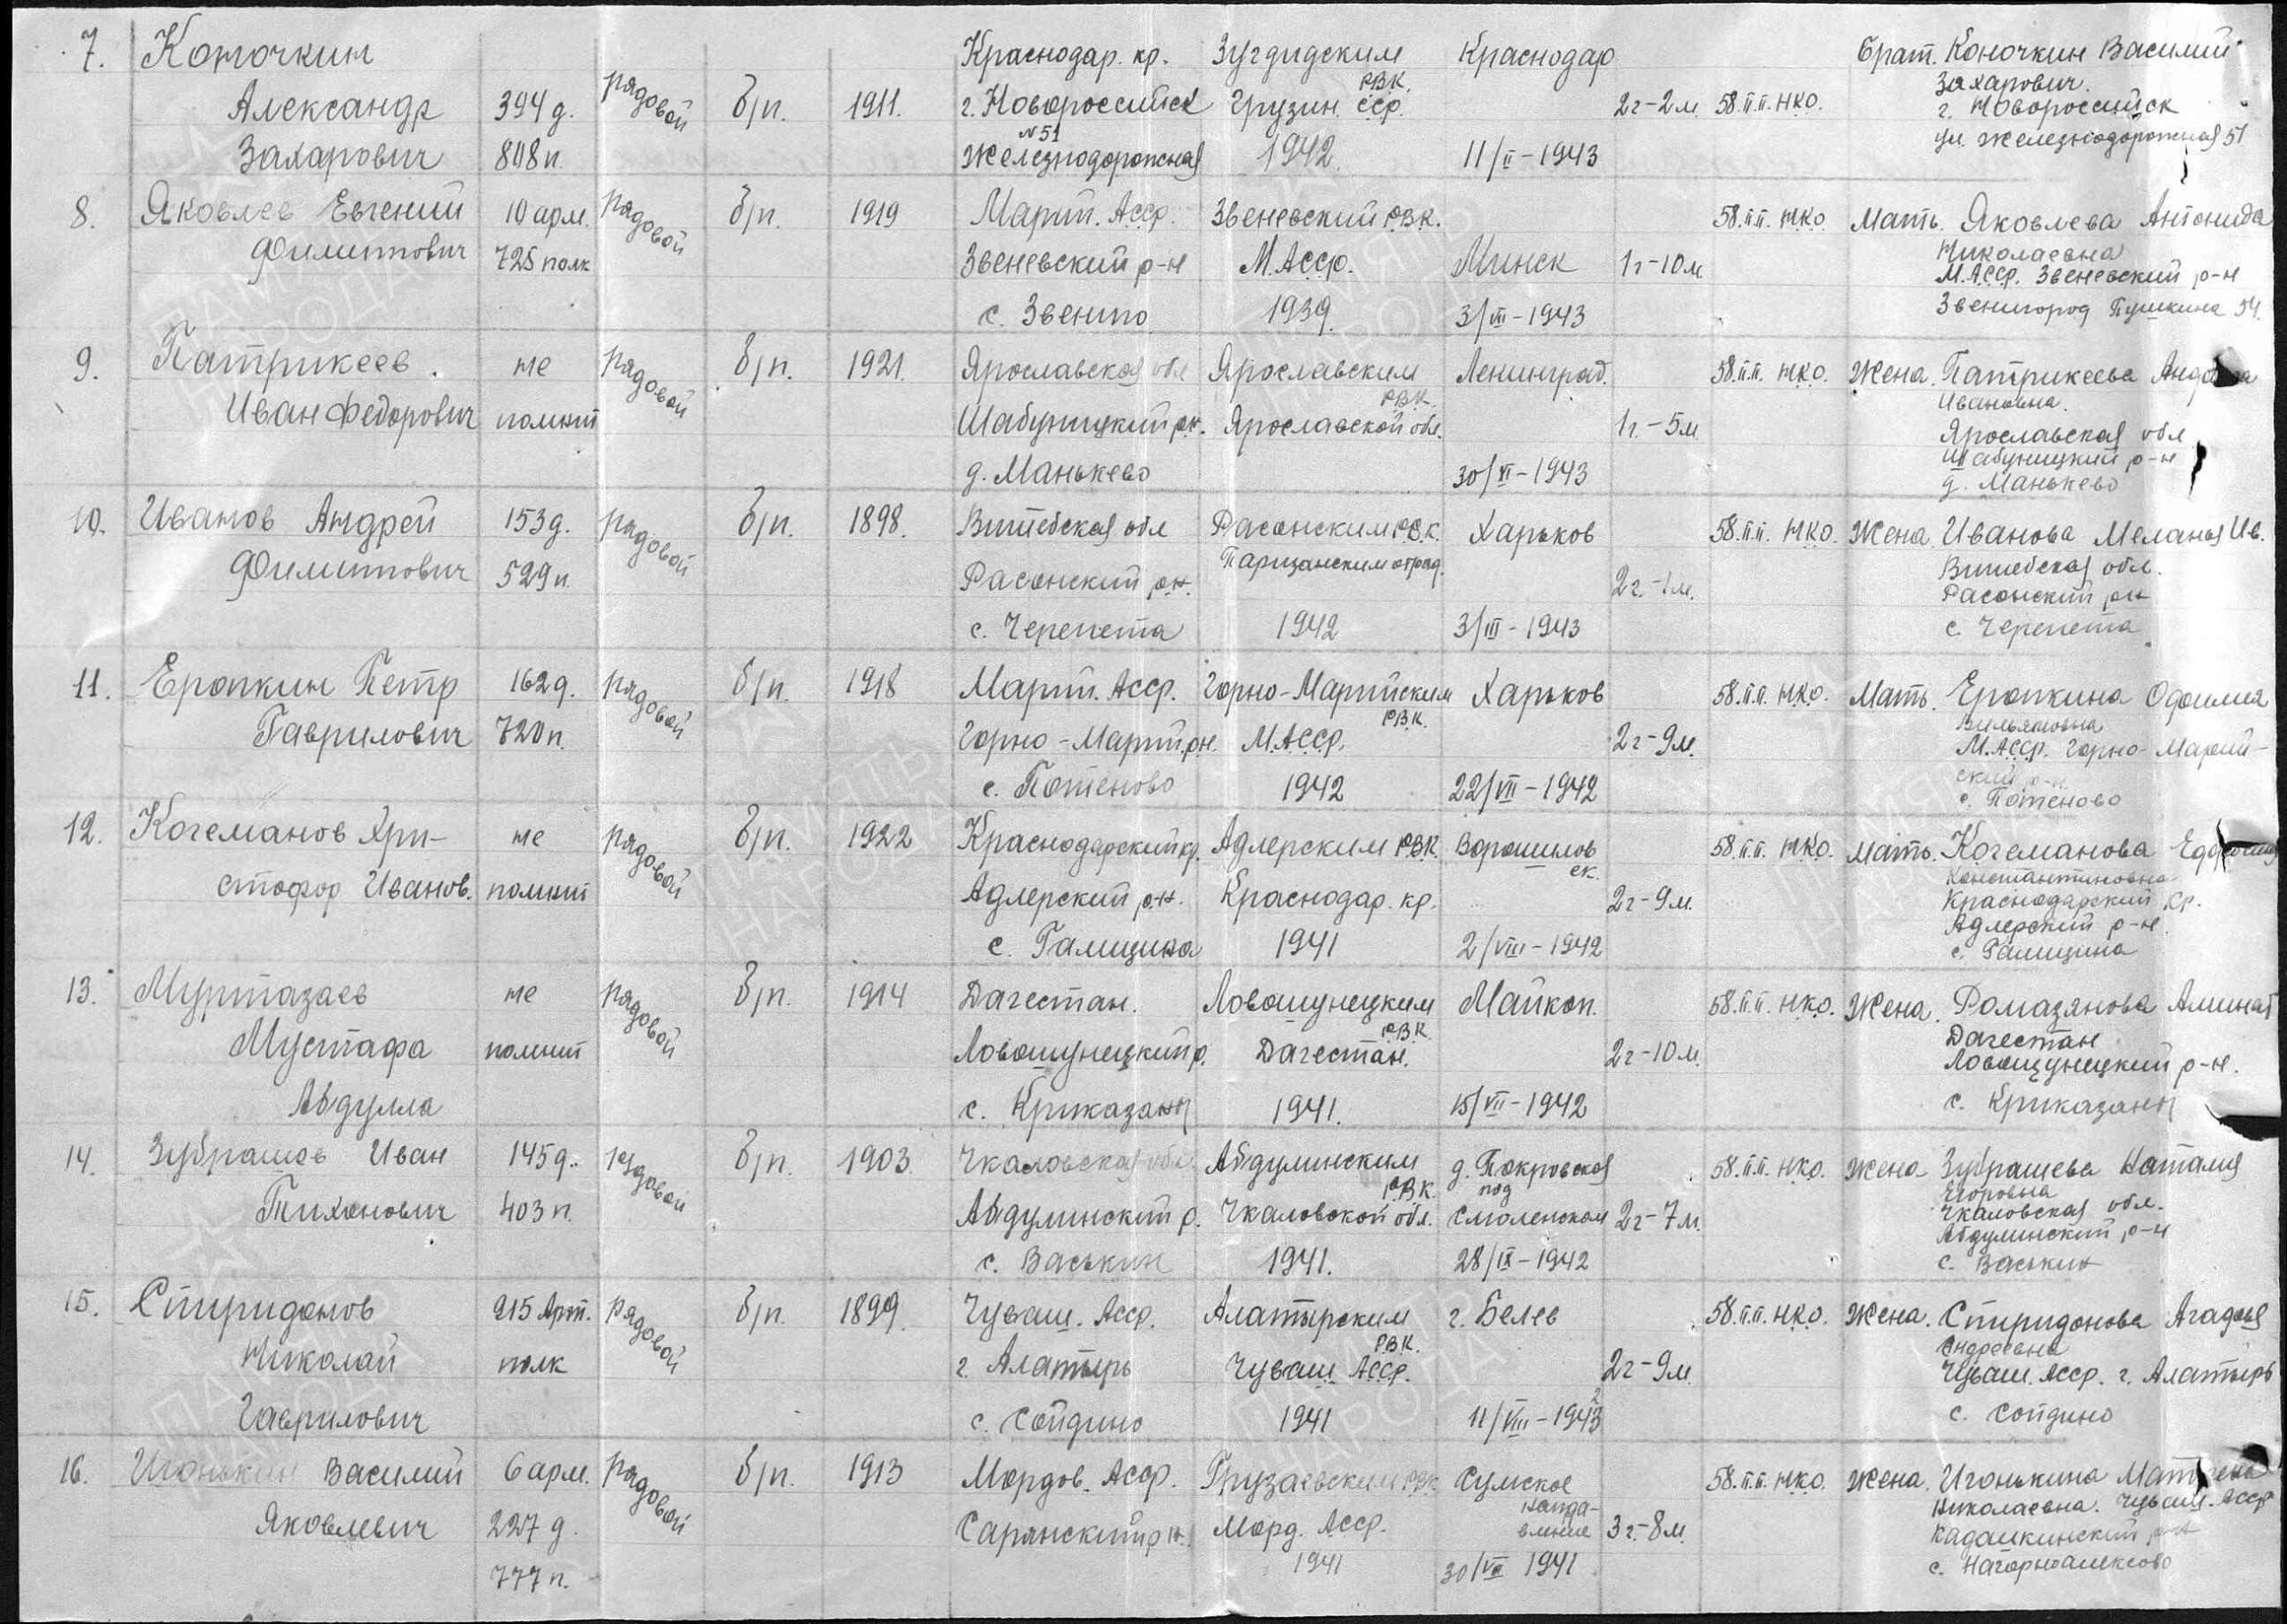 7. Коночкин Краснодар. кр. Зугдидским Краснодар брат. Коночкин Василий
Александр 394 д. рядовой б/п. 1911. г. Новороссийск РВК. Грузин. ССР. 2г-2м 58.п.п. НКО. Захарович. г. Новороссийск
Захарович 808 п. №51 Железнодорожная 1942. 11/II-1943 ул. Железнодорожная 51
8. Яковлев Евгений 10 арм. рядовой б/п. 1919 Марий. АССР. Звеневский РВК. 58.п.п. НКО. Мать. Яковлева Антонида
Филиппович 725 полк Звеневский р-н М.АССР. Минск 1г-10м Николаевна М.АССР. Звеневский р-н
с. Звенино 1939. 3/VII-1943 Звенигород Пушкина 54.
9. Патрикеев не рядовой б/п. 1921. Ярославская обл Ярославским Ленинград. 58.п.п. НКО. Жена. Патрикеева
Иван Федорович помнит Шабуницкий р.н. РВК. Ярославской обл. 1г.-5м Ивановна. Ярославская обл
д. Манькево 30/XI-1943 Шабуницкий р-н д. Манькево
10. Иванов Андрей 153 д. рядовой б/п. 1898. Витебская обл Расонским РВК. Харьков 58.п.п. НКО. Жена. Иванова Меланья Ив.
Филиппович 529 п. Расонский р.н. Парцанским отряд. 2г.-1м. Витебская обл. Расонский р.н
с. Черепета 1942 3/III-1943 с. Черепета
11. Еропкин Петр 162 д. рядовой б/п. 1918 Марий. АССР. Горно-Марийским Харьков 58.п.п. НКО. Мать. Еропкина
Гаврилович 720 п. Горно-Марий.р.н. РВК. М.АССР. 2г-9м. М.АССР. Горно-Марий-
с. Потеново 1942 22/VII-1942 ский р-н с. Потеново
12. Когеманов Хри- не рядовой б/п. 1922 Краснодарский кр. Адлерским РВК. Ворошилов 58.п.п. НКО. Мать. Когеманова
стофор Иванов. помнит Адлерский р.н. Краснодар. кр. ск. 2г-9м. Константиновна Краснодарский кр. Адлерский р-н.
с. Галицина 1941 2/VIII-1942 с. Галицина
13. Муртазаев не рядовой б/п. 1914 Дагестан. Ловошунецким Майкоп. 58.п.п. НКО. Жена. Ромазянова Аминат
Мустафа помнит Ловошунецкий р. РВК. Дагестан. 2г-10м. Дагестан Ловошунецкий р-н.
Абдулла с. Криказани 1941. 15/VII-1942 с. Криказани
14. Зубрашев Иван 145 д. рядовой б/п. 1903. Чкаловская обл. Абдулинским д. Покровская 58.п.п. НКО. Жена Зубрашева Наталия
Тихонович 403 п. Абдулинский р. РВК. Чкаловской обл. под Смоленском 2г-7м. Егоровна Чкаловская обл. Абдулинский р-н
с. Васькин 1941. 28/IX-1942 с. Васькин
15. Спиридонов 215 Арт. рядовой б/п. 1899. Чуваш. АССР. Алатырским г. Белев 58.п.п. НКО. Жена. Спиридонова Агафья
Николай полк г. Алатырь РВК. Чуваш. АССР. 2г-9м. Андреевна Чуваш. АССР. г. Алатырь
Гаврилович с. Сойдино 1941 11/VIII-1943 2 с. Сойдино
16. Игонькин Василий 6 арм. рядовой б/п. 1913 Мордов. АССР. Рузаевским РВК Сумское 58.п.п. НКО. Жена. Игонькина Матрена
Яковлевич 227 д. Саранский р.н. Морд. АССР. 3г.-8м. Николаевна. Чуваш. АССР Кадашкинский р.н
777 п. 1941 30/VII 1941